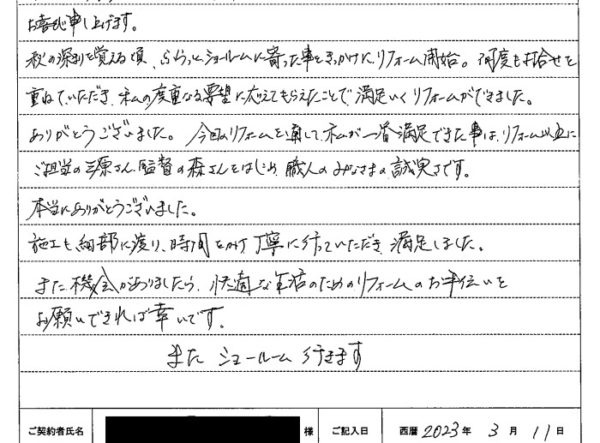 お喜び申し上げます。
秋の深まりを覚える頃、ふらっとショールームに寄った事をきっかけにリフォーム開始。何度も打合せを
重ねていただき、私の度重なる要望に応えてもらえたことで満足いくリフォームができました。
ありがとうございました。今回のリフォームを通して私が一番満足できた事は、リフォーム以上に
ご担当の三原さん、監督の森さんをはじめ、職人のみなさまの誠実さです。
本当にありがとうございました。
施工も細部に渡り、時間をかけ丁寧に行っていただき、満足しました。
また機会がありましたら、快適な生活のためのリフォームのお手伝いを
お願いできれば幸いです。
また ショールーム 行きます
ご契約者氏名 様 ご記入日 西暦 2023年 3月 11日